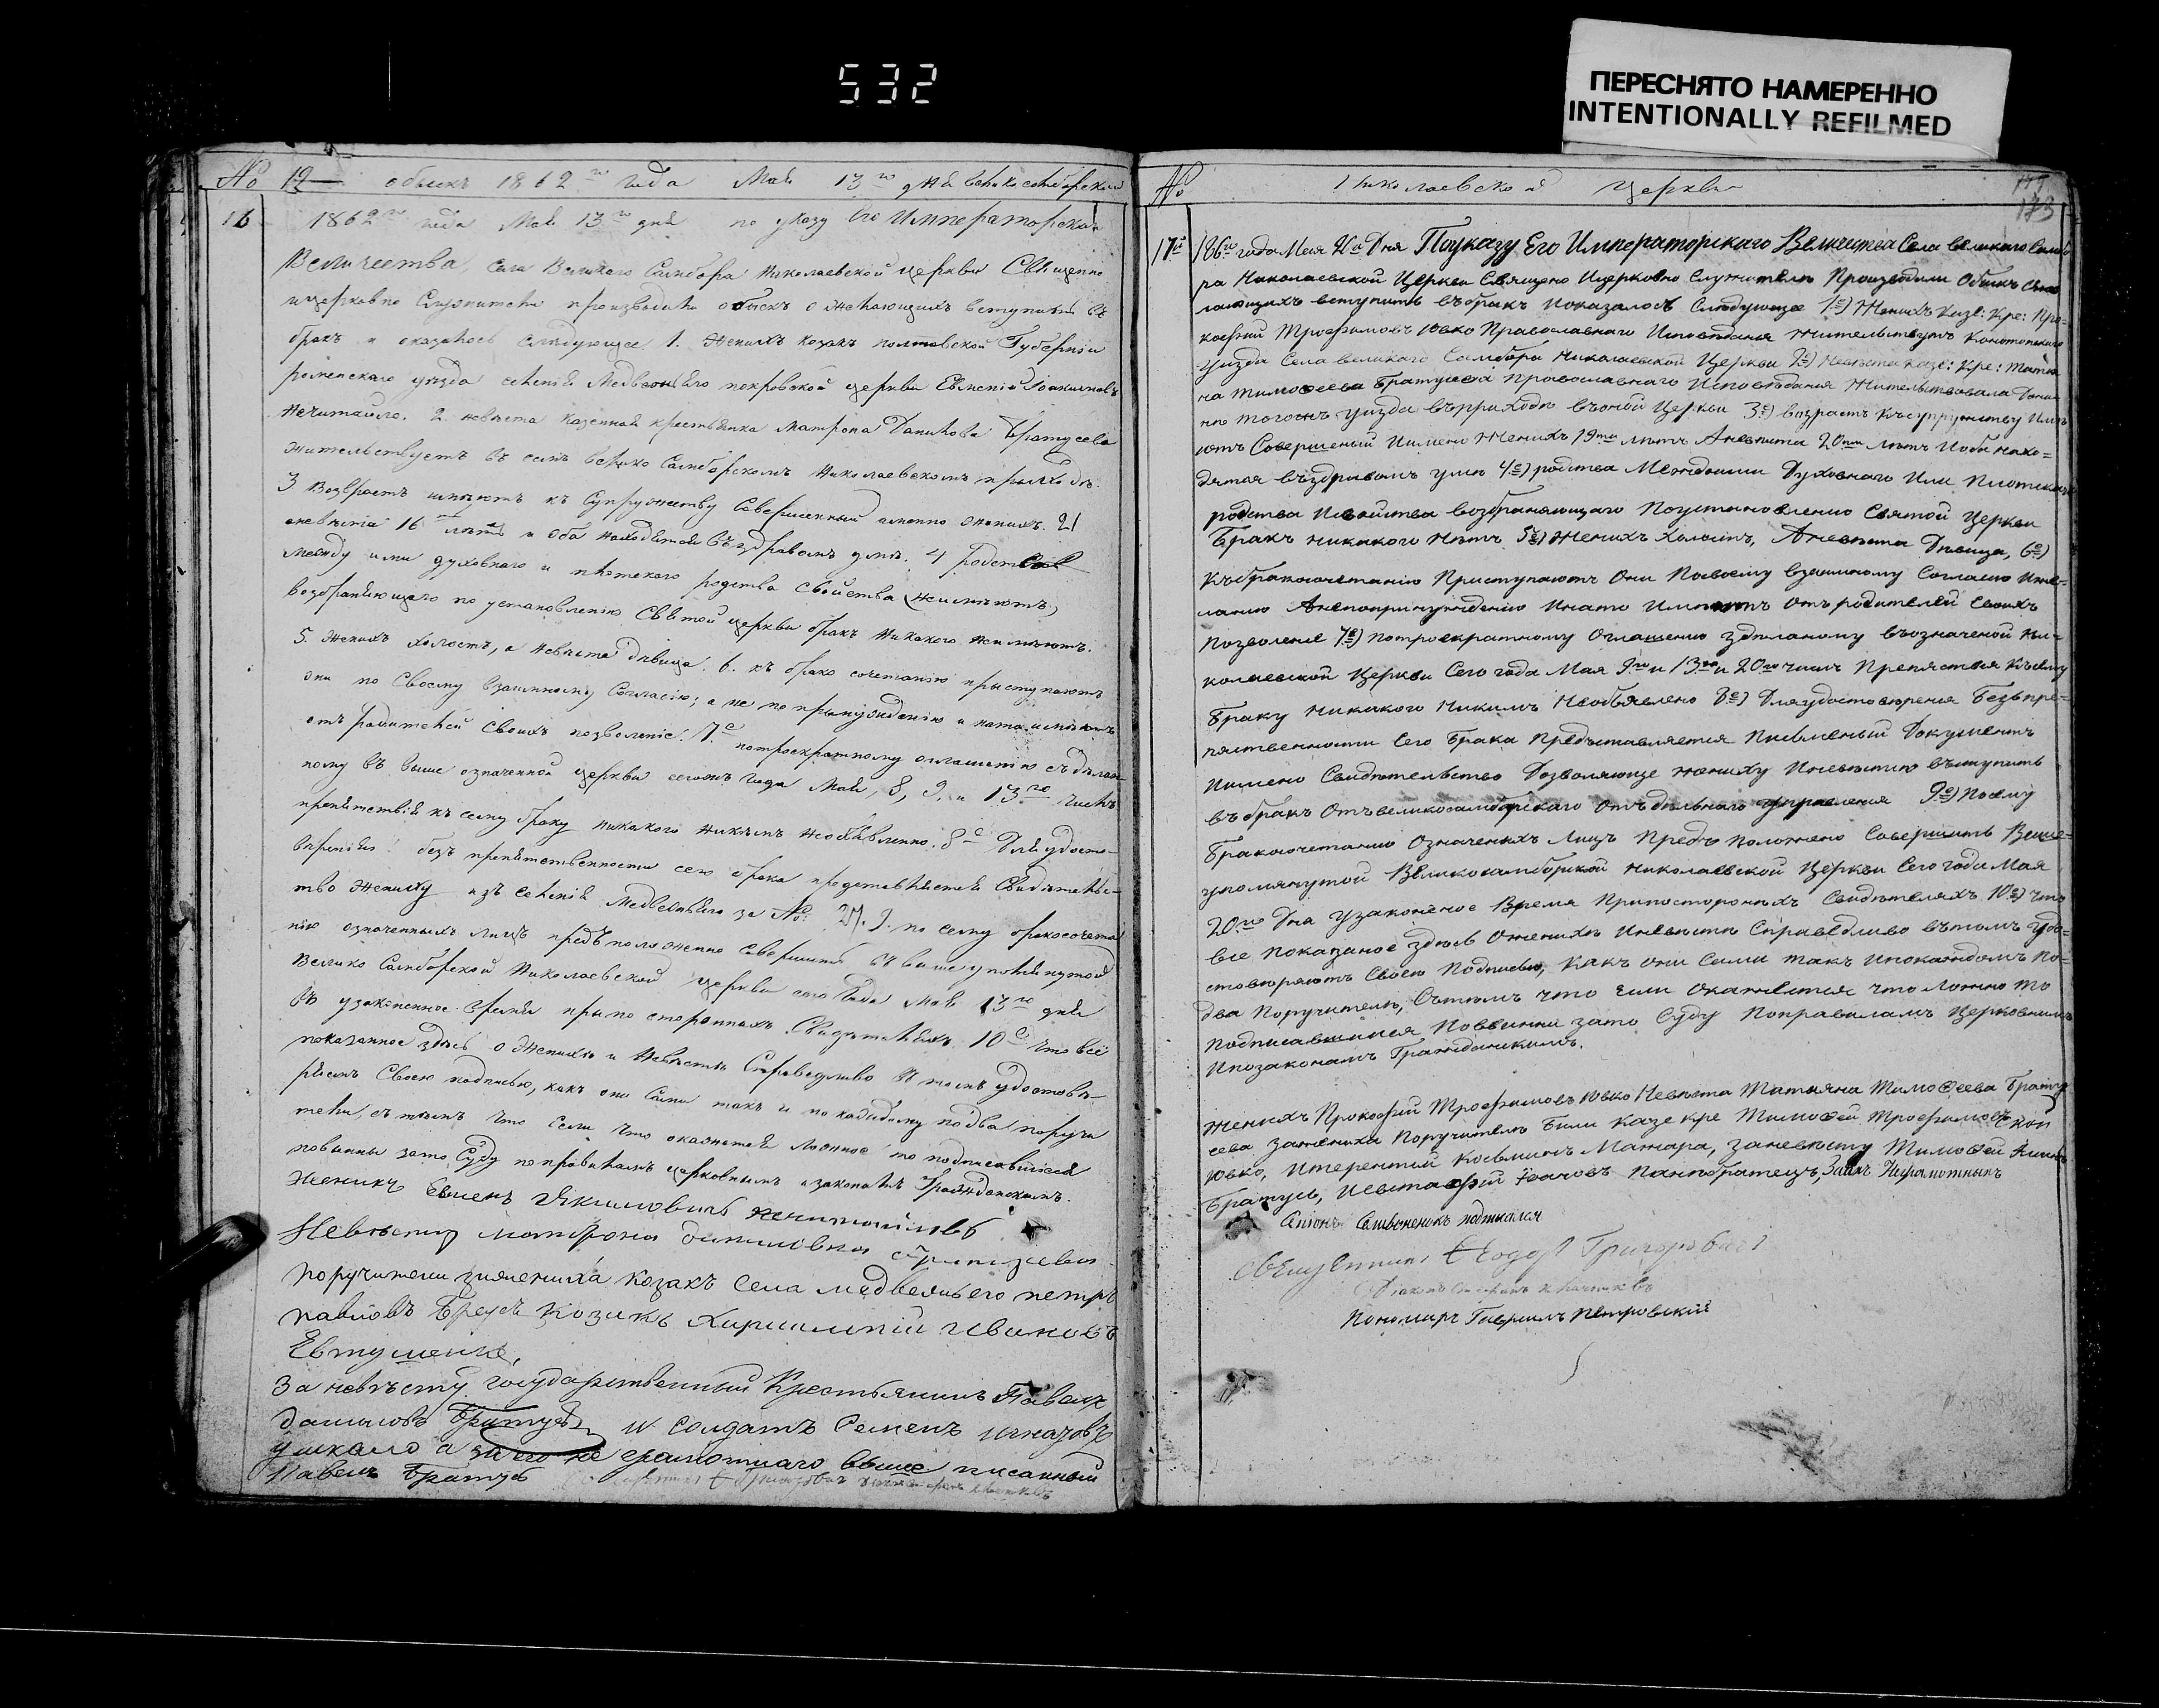 532
ПЕРЕСНЯТО НАМЕРЕННО
INTENTIONALLY REFILMED
№ 19 обыскъ 1862го года Мая 13го дня великосамборской
16 1862го года Мая 13го дня по указу Его Императорскаго
Величества, села Великаго Самбора Николаевской церкви Священно
ицерковно Служители производили обыскъ о желающихъ вступить въ
бракъ и оказалось слѣдующее 1. Женихъ козакъ полтавской Губерніи
роменскаго уѣзда селенія Медвежьяго покровской церкви Евменій Іоакимовъ
Нечитайло. 2. невѣста казенная крестьянка Матрона Данилова Братусева
жительствуетъ въ селѣ велико Самборскомъ Николаевскомъ приходѣ.
3 Возврастъ имѣютъ къ Супружеству Совершенный именно женихъ. 21
аневѣста 16 лѣтъ и оба находятся въ здравомъ умѣ. 4 родства
между ими духовнаго и плотскаго родства свойства (неимѣютъ)
возбраняющаго по установленію Святой церкви бракъ никакого неимѣютъ.
5. Женихъ холостъ, а невѣста дѣвица. 6. къ брако сочетанію приступаютъ
они по Своему взаимному Согласію; а не по принужденію и нато имѣютъ
отъ родителей своихъ позволеніе. 7.е потроекратному оглашенію сдѣлан
ному въ выше означенной церкви сегожъ года Мая, 8, 9, и 13го числъ
препятствія къ сему браку никакого никѣмъ необъявленно. 8е Для удосто-
веренія безъ препятственности сего брака представляется Свидѣтельс-
тво жениху изъ селенія Медвежьяго за №: 27. 9. по сему бракосочета
нію означенныхъ лицъ предъположенно совершить въ вышеупомянутой
Велико Самборской Николаевской церкви сего года Мая 13го дня
въ узаконенное время при по стороннихъ Свидѣтеляхъ 10е Что всё
показанное здѣсь о Женихѣ и Невѣстѣ Справедливо въ томъ удостовѣ-
ряемъ Своею подписью, какъ они Сами такъ и по каждому подва поручи
тели, съ тѣмъ что если что окажется ложное то подписавшіеся
повинны зато Суду поправиламъ церковнымъ изаконамъ Гражданскимъ.
Женихъ Евменъ Якимовичъ
Невѣста матрона даниловна
поручители зажениха козакъ села медвежьего петръ
павловъ козакъ Ивановъ
Евтушенко,
За невѣсту государственный Крестьянинъ Павелъ
даниловъ Братусь и солдатъ Семенъ
а неграмотнаго выше писанный
Павелъ Братусь
№ Николаевской Церкви
173
17й 186го года Мая 20го Дня Поуказу Его Императорскаго Величества Села великаго Самбо
ра Николаевской Церкви Священо Ицерковно Служители Производили Обыскъ ожe
лающихъ вступить въбракъ Показалось Слѣдующее 1е) Женихъ Казе: Кре: Про-
кофий Трофимовъ Ювко Православнаго Исповѣданія Жительствуетъ Конотопскаго
уизда Села великаго Самбора Николаевской Церкви 2е) Невѣста казе: Кре: Татья
на тимофеева Братусева Православнаго Исповѣданія Жительствовала Доны
не тогожъ уизда въприходѣ въоной Церкви 3е) возрастъ Ксупружеству Имѣ
ютъ Совершеный Иимено Женихъ 19ть лѣтъ Аневѣста 20ть лѣтъ Иоба нахо=
дятся въздравомъ умѣ 4е) родства Междоими Духовнаго Или Плотскаго
родства Исвойства возбраняющаго Поустановлению Святой Церкви
Бракъ никакого Нѣтъ 5е) Женихъ Холостъ, Аневѣста Дѣвица, 6е)
Къбракосочетанію Приступаютъ Они Посвоему взаимному Согласию Иже-
ланию Анепопринуждению Инато Имѣютъ Отъродителей своихъ
Позволение 7е) Потроекратному Оглашению здѣланому въозначеной Ни-
колаевской Церкви Сего года Мая 9го и 13го и 20го числъ Препятствия Късему
Браку Никакого Никимъ Необъявлено 8е) Дляудостовюрения Безъпре-
пятственности Сего Брака Предъставляется Писменый Документъ
Иимено Свидѣтельство Дозволяюще жениху Иневѣстѣ въступить
въбракъ Отъвеликосамборскаго отъдѣльнаго управления 9е) Посему
Бракосочетанию Означеныхъ Лицъ Предъ положено Совершить Выше=
упомянутой Великосамборской Николаевской Церкви Сего года Мая
20го Дня Узаконеное Время Припостороныхъ Свидѣтеляхъ 10е) Что
все Показаное здѣсь Оженихѣ Иневѣстѣ Справедливо вътомъ удо=
стовюряютъ Своею Подписью, Какъ они Сами такъ Ипокаждомъ по-
два Поручителю, Сътимъ что если Окажется что ложно то
Подписавшиися Повинни зато Суду Поправиламъ Церковнимъ
Ипозаконамъ Гражданскимъ.
Женихъ Прокофий Трофимовъ Ювко Невѣста Татьяна Тимофеева Брату
сева зажениха Поручителю Били Казе кре Тимофей Трофимовъ
Ювко, Итерентий Косьминъ Мажара, заневѣсту Тимофей
Братусь, Иевстафий Панибратецъ, Заихъ Неграмотныхъ
подписался
Священникъ Ѳеодоръ Григоровичъ
Пономарь Гавриилъ Петровский